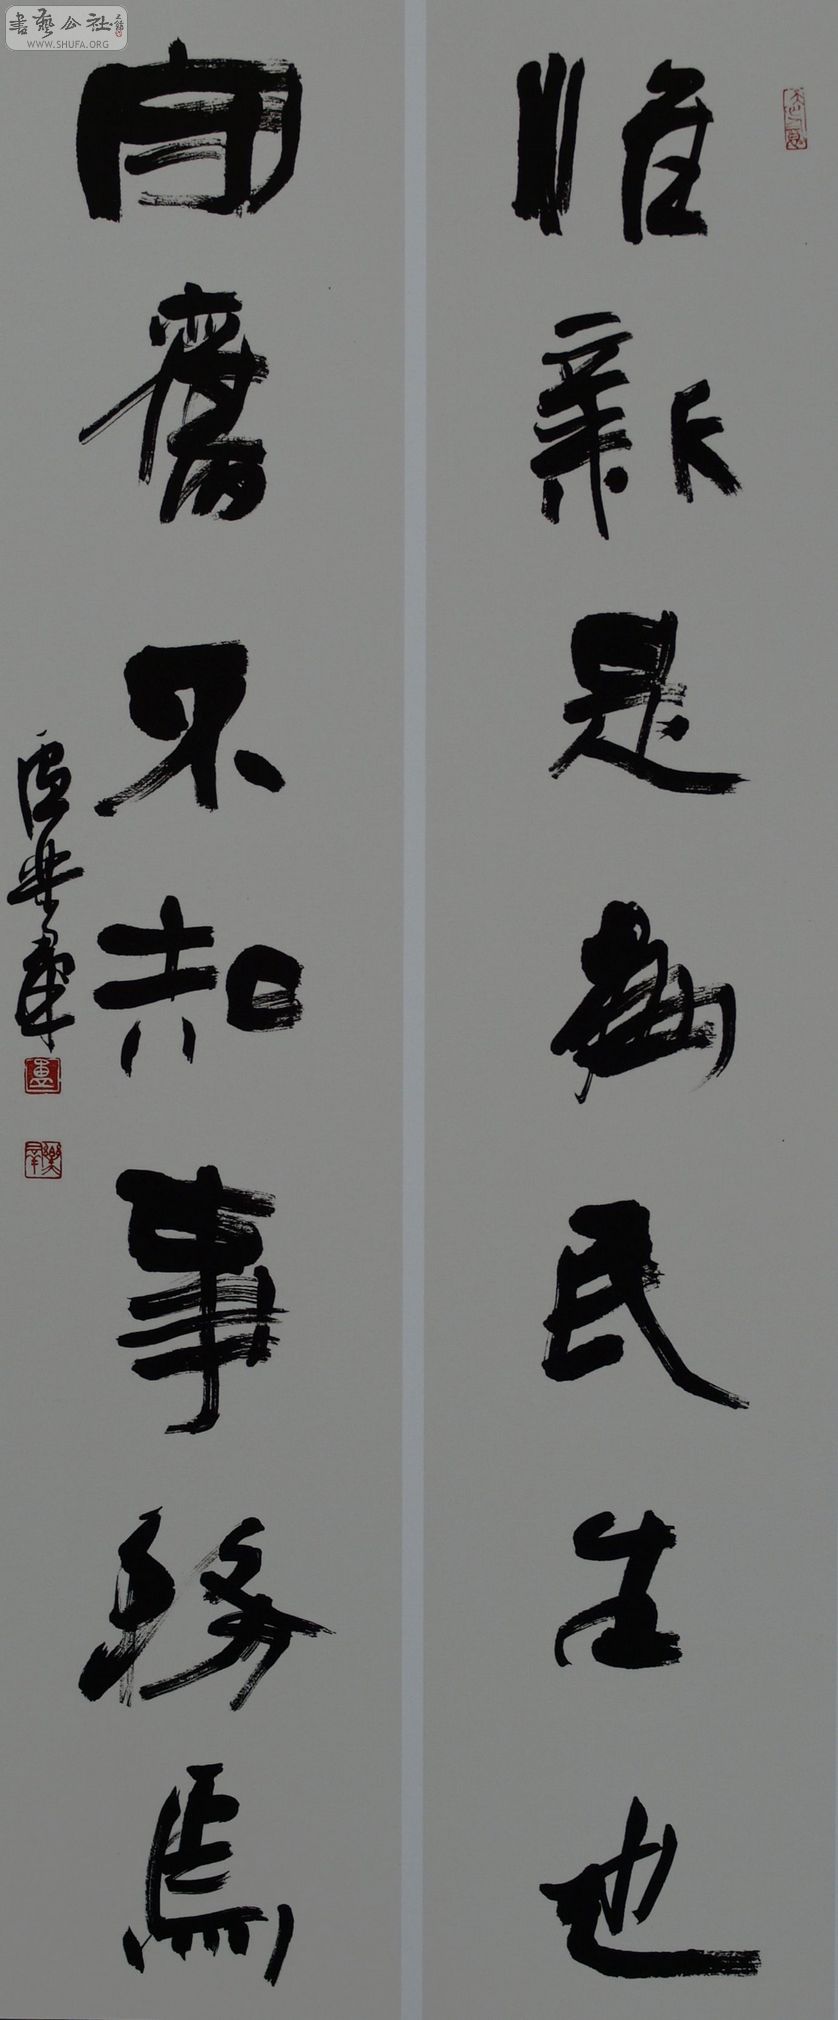 書藝公社
WWW.SHUFA.ORG
惟新是民生也
舊不知事務焉
盧樂羣